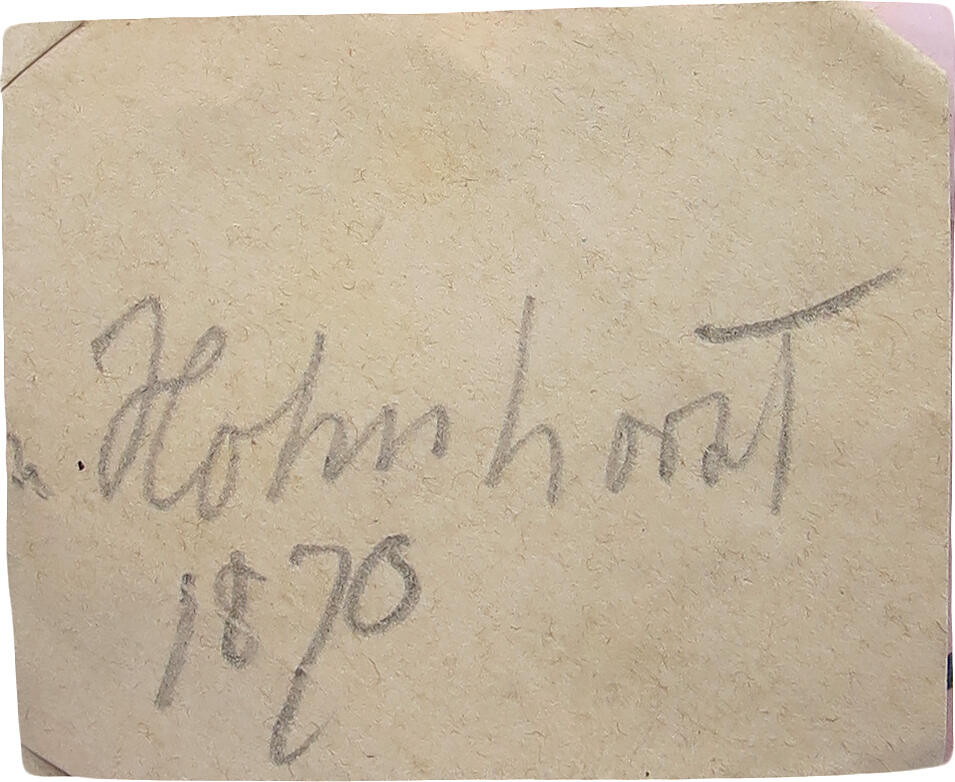 Hohnhorst
1870